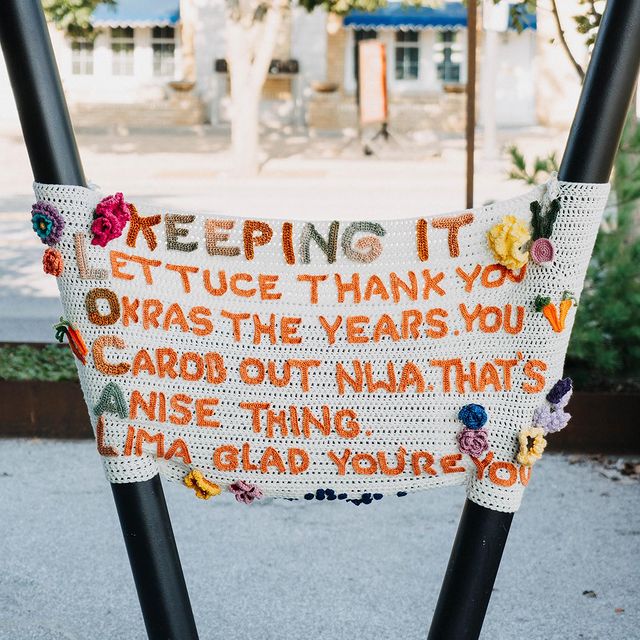 KEEPING IT
LETTUCE THANK YOU
OKRAS THE YEARS. YOU
CAROB OUT NWA. THAT'S
ANISE THING.
LIMA GLAD YOU'RE YOU